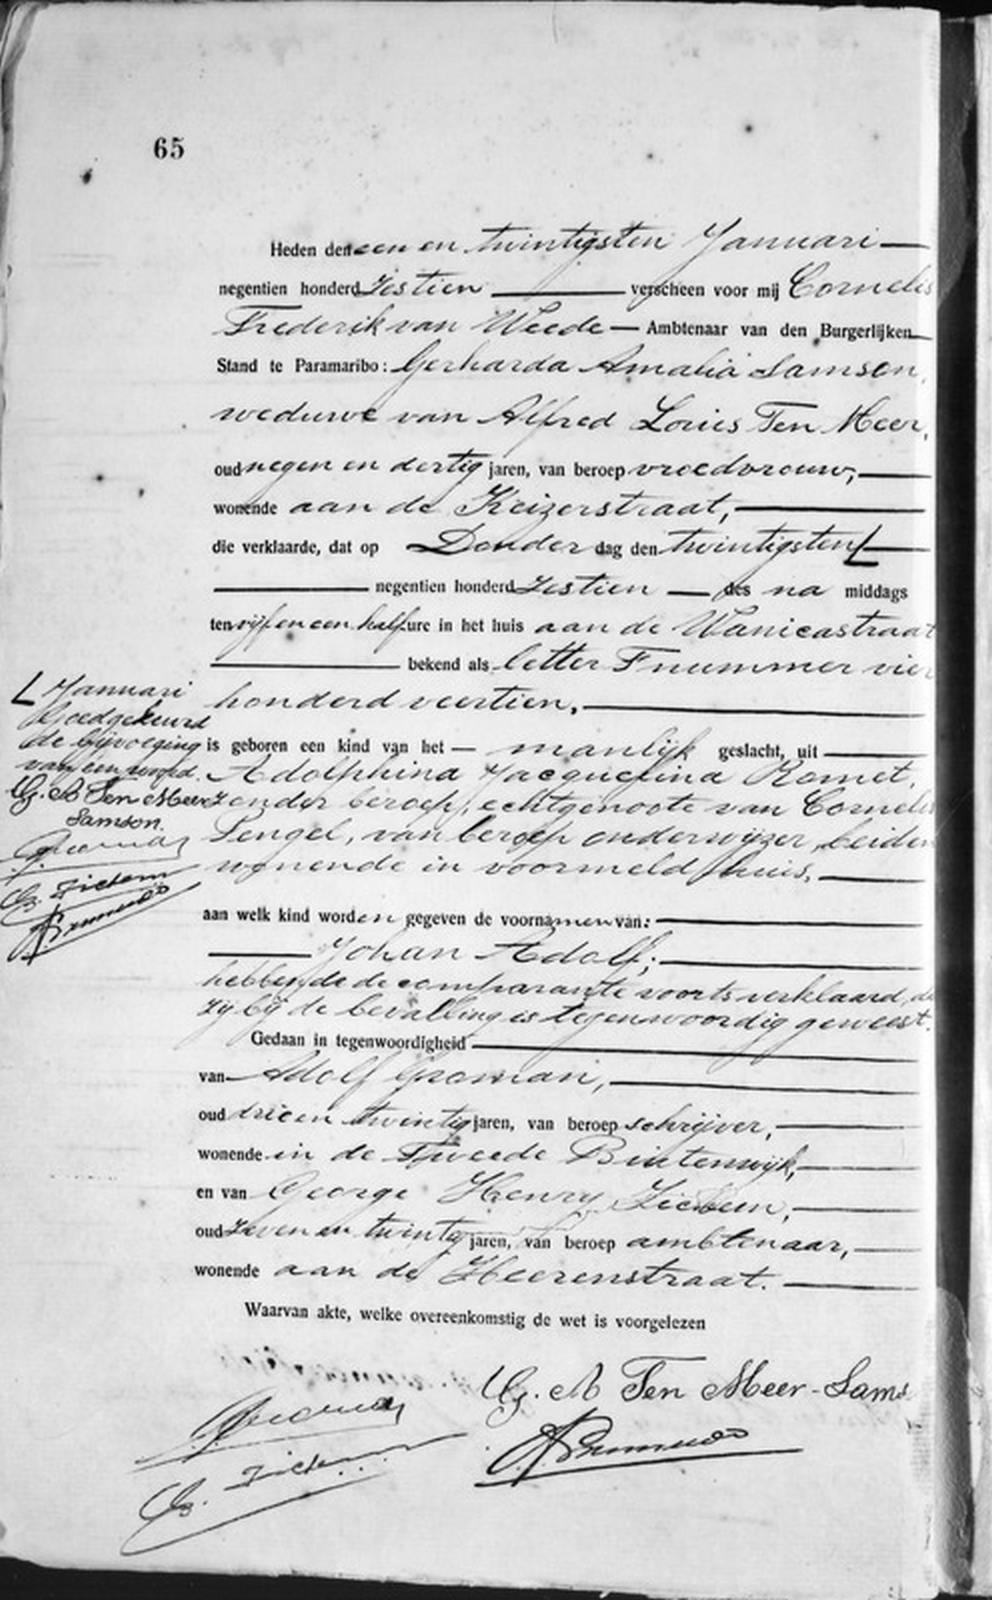 65
Heden den een en twintigsten Januari
negentien honderd zestien verscheen voor mij Cornelis
Frederik van Weede Ambtenaar van den Burgerlijken
Stand te Paramaribo: Gerharda Amalia Samson,
weduwe van Alfred Louis Ten Meer,
oud negen en dertig jaren, van beroep vroedvrouw,
wonende aan de Keizerstraat,
die verklaarde, dat op Donderdag den twintigsten
negentien honderd zestien des na middags
ten vijf en een half ure in het huis aan de Wanicastraat
bekend als letter F nummer vier
honderd veertien,
is geboren een kind van het manlijk geslacht, uit
Adolphina Jacquelina Romet,
zonder beroep, echtgenoote van Cornelis
Pengel, van beroep onderwijzer, beiden
wonende in voormeld huis,
aan welk kind worden gegeven de voornamen van:
Johan Adolf;
hebbende de comparante voorts verklaard, da
zij bij de bevalling is tegenwoordig geweest.
Gedaan in tegenwoordigheid
van Adolf Groman,
oud drie en twintig jaren, van beroep schrijver,
wonende in de Tweede Buitenwijk,
en van George Henry
oud zeven en twintig jaren, van beroep ambtenaar,
wonende aan de Heerenstraat.
Waarvan akte, welke overeenkomstig de wet is voorgelezen
G. A Ten Meer-Sams
Januari
Goedgekeurd
de bijvoeging
van een woord.
G. A Ten Meer
Samson.